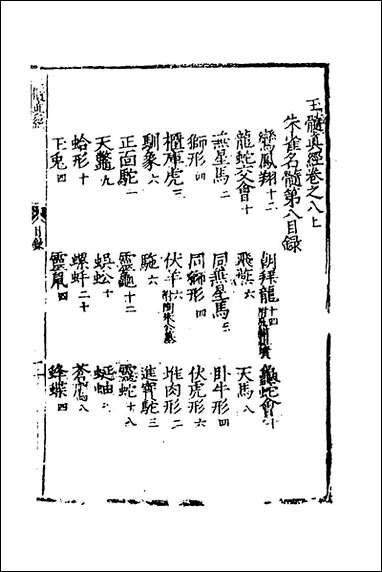 玉髓真經卷之八上
朱雀名髓第八目錄
鸞鳳翔十二 朝拜龍十四 龜蛇會十
龍蛇交會十 飛燕六 天馬八
無星馬二 同無星馬二 卧牛形四
獅形四 同獅形四 伏虎形六
櫃庫虎三 伏羊六 堆肉形二
馴象六 駞六 進寶駝三
正面駝一 靈龜十二 靈蛇十八
天鱉九 蜈蚣十 蜒蚰
蛤形十 螺蚌二十 蒼鷹八
玉兎四 靈鼠四 蜂蝶四
髓真經
目錄